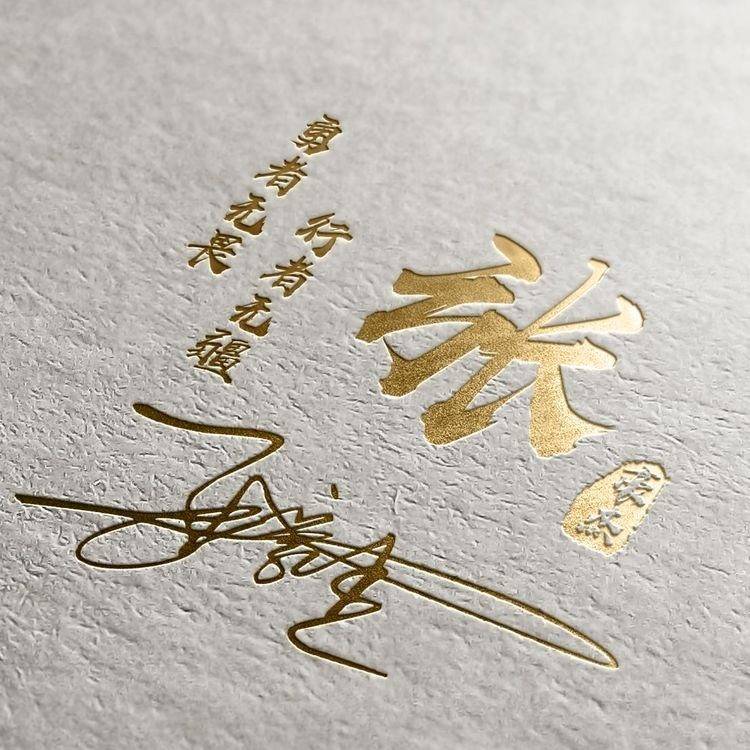 勇者无畏
行者无疆
张